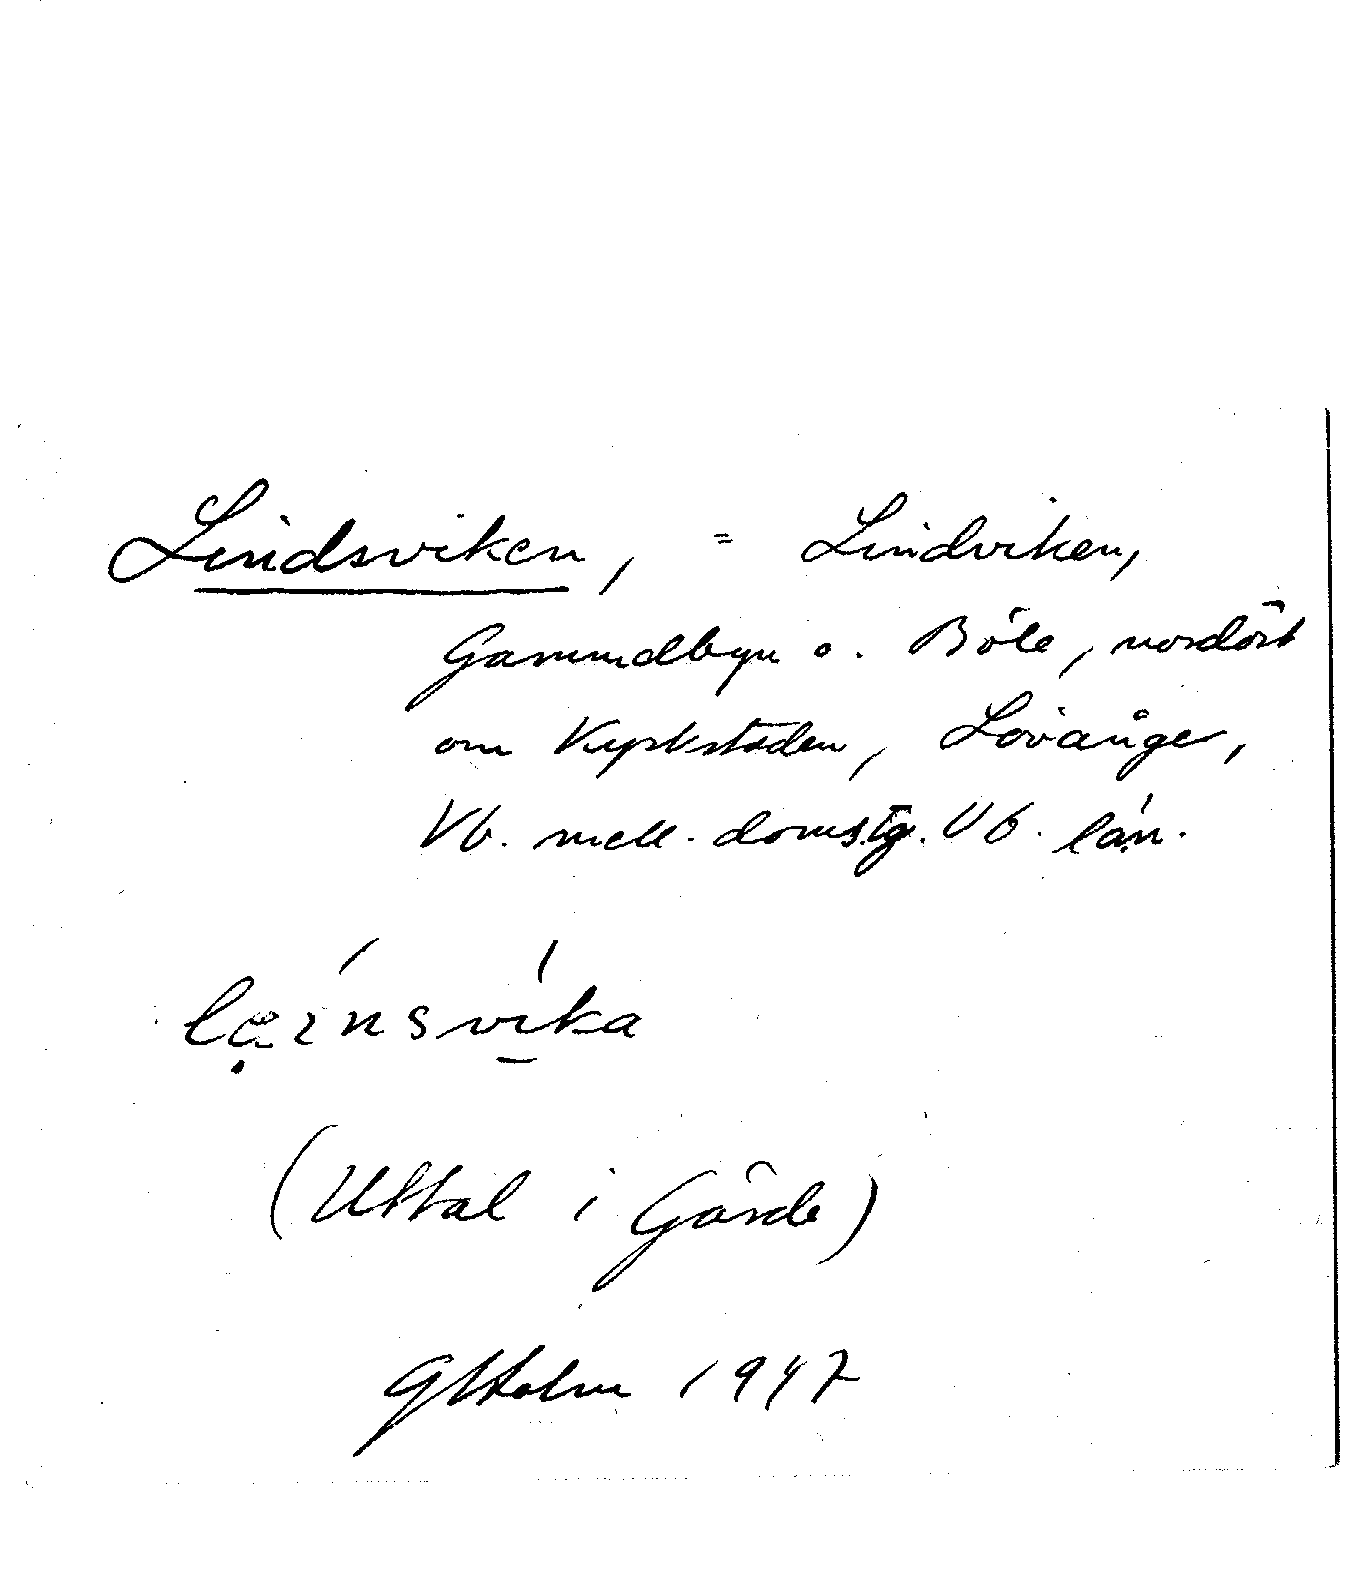 Lindsviken, = Lindviken,
Gammelbyn o. Böle, nordöst
om Kyrkstaden, Lövånger,
Vb. mell. domstg. Vb. län.
læinsvika
(Uttal i Gärde)
GHolm 1947